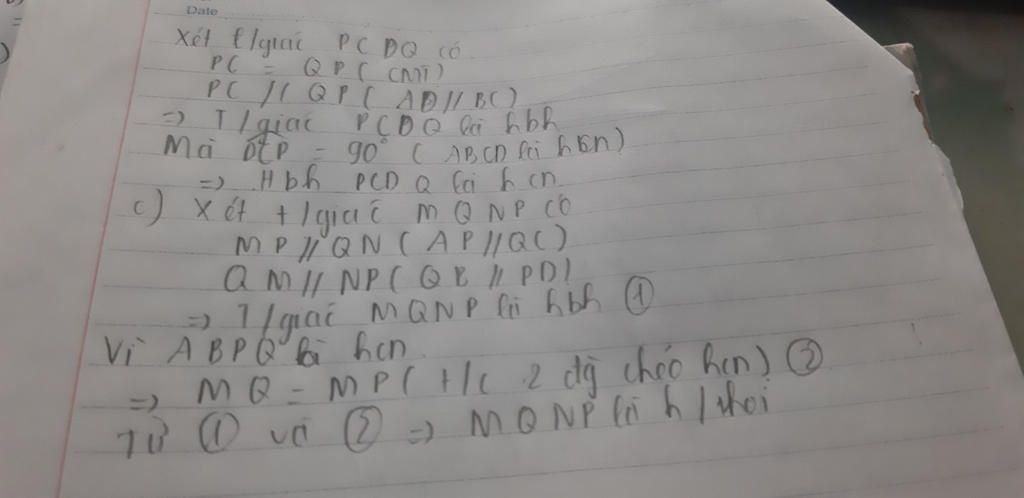 Date
Xét t/giác PCDQ có
PC = QP ( CMT)
PC // QP ( AD // BC)
=) T/giác PCDQ là hbh
Mà = 90° ( ABCD là hcn)
=) Hbh PCD Q là hcn
c) Xét t/giác MQNP có
MP // QN ( AP // QC)
QM // NP ( QB // PD)
=) T/giác MQNP là hbh ①
Vì ABPQ là hcn
=) MQ = MP ( t/c 2 đg chéo hcn) ②
Từ ① và ② =) MQNP là h/thoi